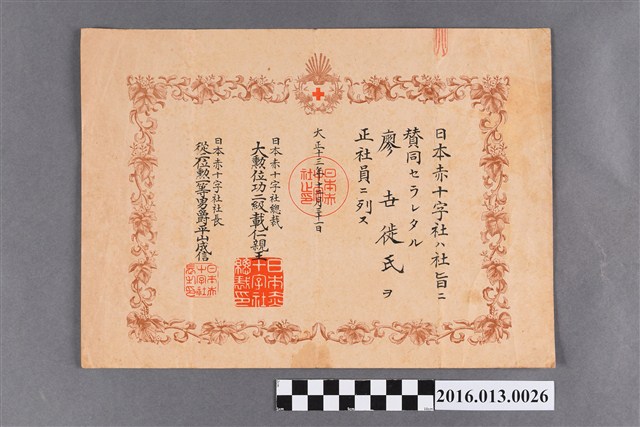 日本赤十字社ハ社旨ニ
賛同セラレタル
廖世徙氏ヲ
正社員ニ列ス
大正十三年十一月三十一日
日本赤十字社總裁
大勲位功二級載仁親王
日本赤十字社總裁印
日本赤十字社社長
從二位勲一等男爵平山成信
2016.013.0026